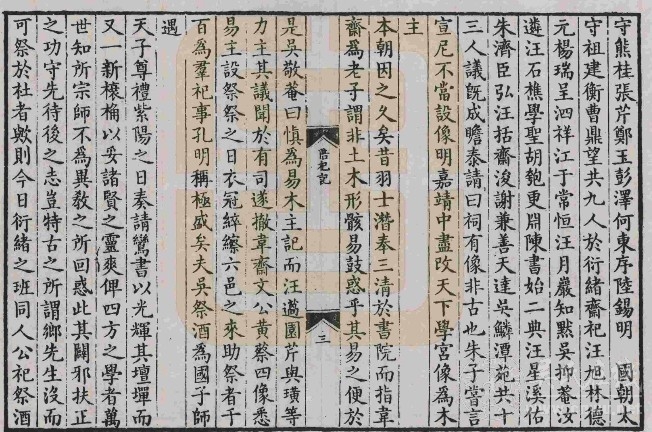 守熊桂張芹鄭玉彭澤何東序陸錫明　國朝太
守祖建衡曹鼎望共九人於衍緒齋祀汪旭林德
元楊瑞呈泗祥江于常恒汪月巖知黙吳抑菴汝
遴汪石樵學聖胡匏更閎陳書始二典汪星溪佑
朱濟臣弘汪括齋浚謝兼善天達吳鱗潭苑共十
三人議既成瞻泰請曰祠有像非古也朱子嘗言
宣尼不當設像明嘉靖中盡改天下學宮像為木
主
本朝因之久矣昔羽士潛奉三清於書院而指韋
齋為老子謂非土木形骸易鼓惑乎其易之便於
崇祀記
三
是吳敬菴曰愼為易木主記而汪邁園芹與璜等
力主其議聞於有司遂撤韋齋文公黃蔡四像悉
易主設祭祭之日衣冠綷縩六邑之來助祭者千
百為羣祀事孔明稱極盛矣夫吳祭酒為國子師
遇
天子尊禮紫陽之日奏請鸞書以光輝其壇墠而
又一新榱桷以妥諸賢之靈爽俾四方之學者萬
世知所宗師不為異教之所回惑此其闢邪扶正
之功守先待後之志豈特古之所謂鄉先生沒而
可祭於社者歟則今日衍緒之班同人公祀祭酒